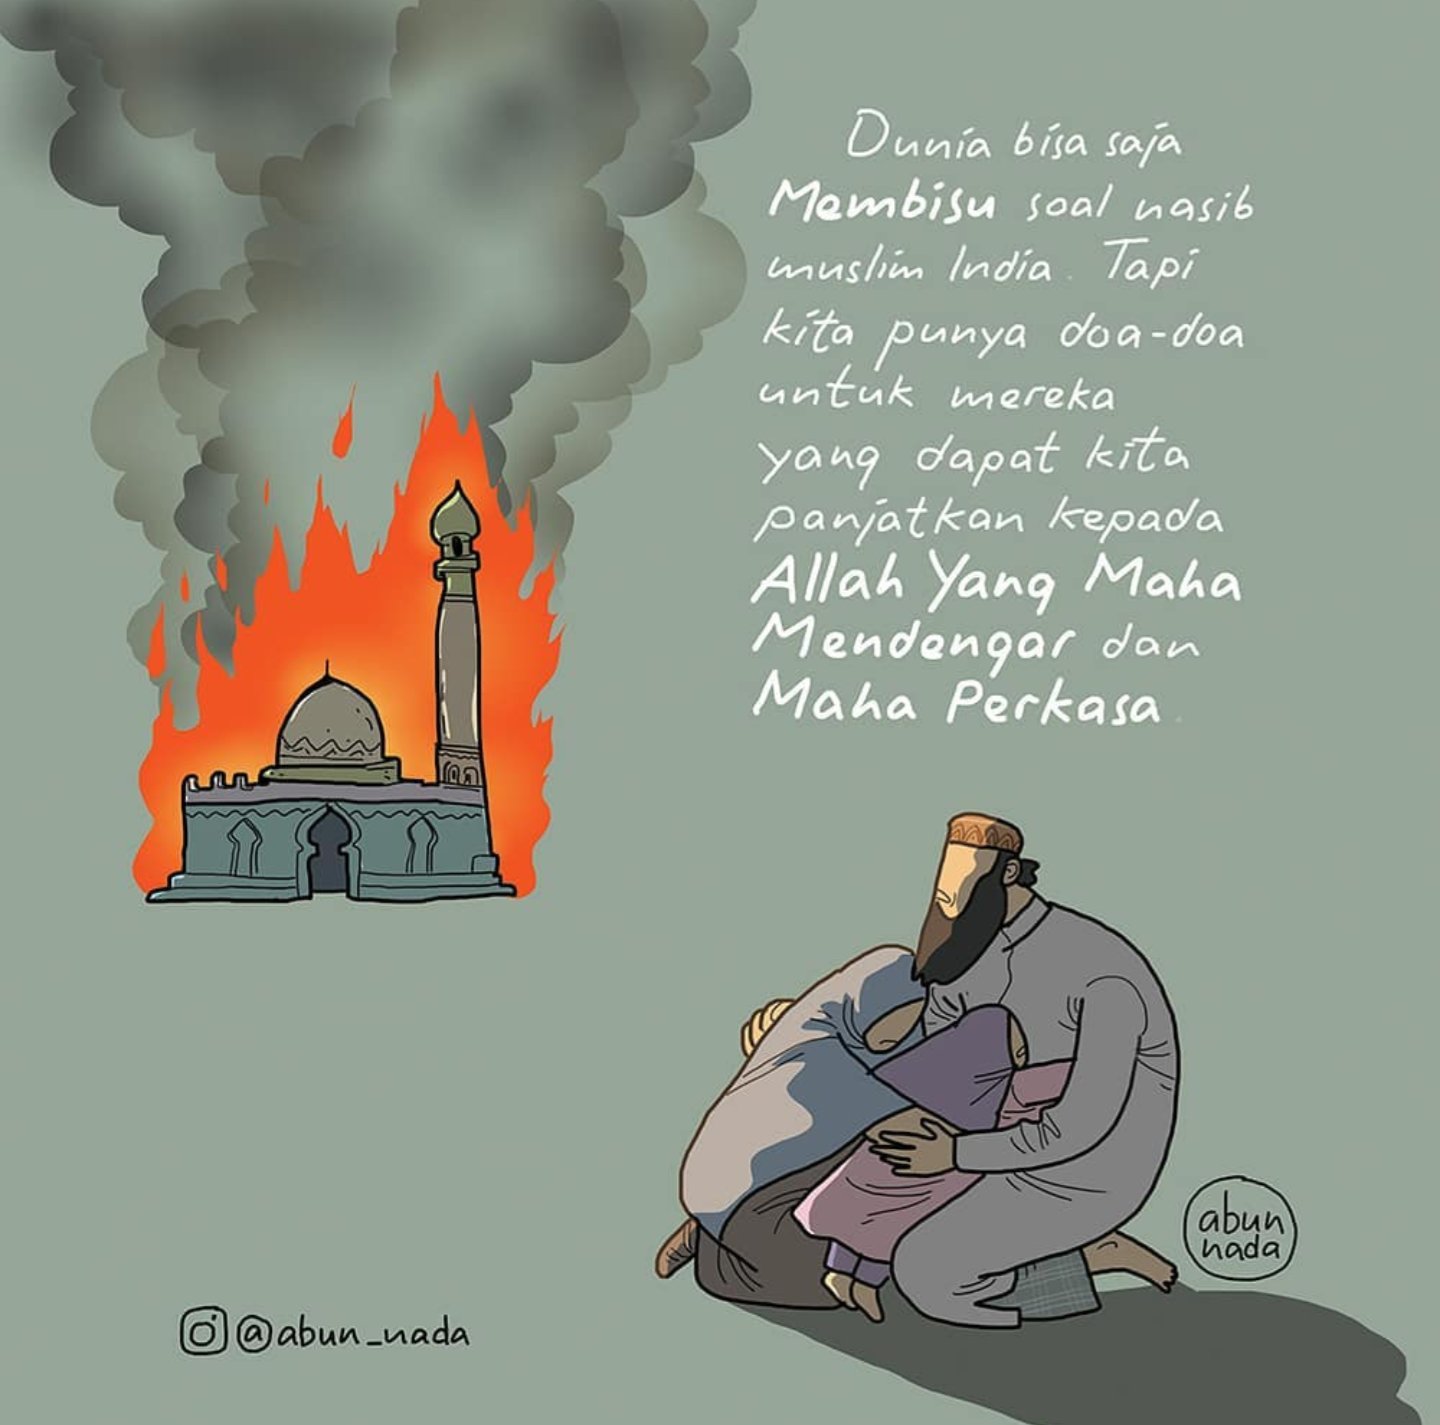 Dunia bisa saja
Membisu soal nasib
muslim India. Tapi
kita punya doa-doa
untuk mereka
yang dapat kita
panjatkan kepada
Allah Yang Maha
Mendengar dan
Maha Perkasa.
abun
nada
@abun_nada